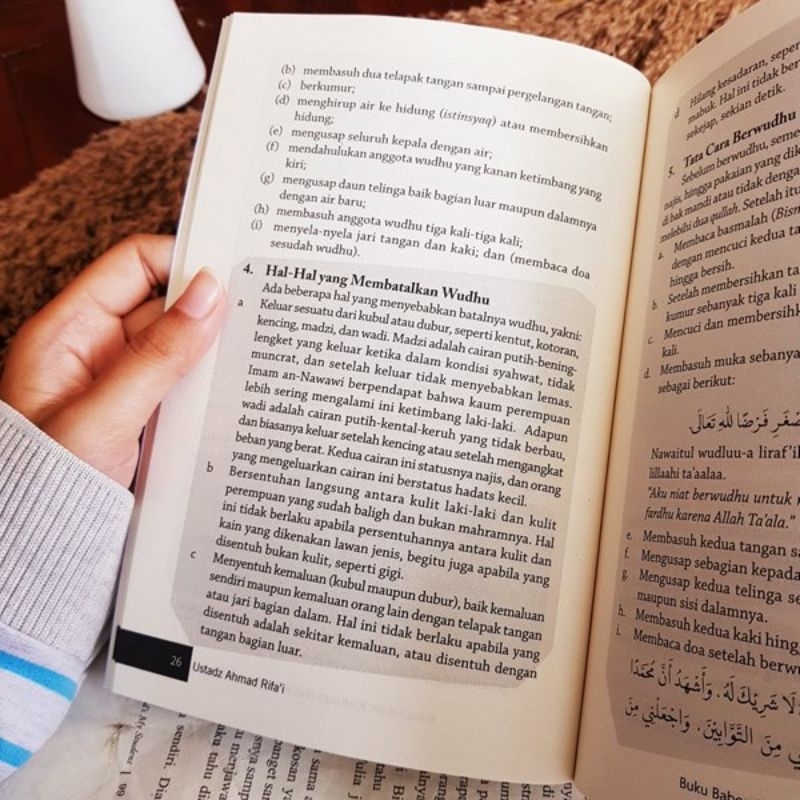 (b) membasuh dua telapak tangan sampai pergelangan tangan;
(c) berkumur;
(d) menghirup air ke hidung (istinsyaq) atau membersihkan
hidung;
(e) mengusap seluruh kepala dengan air;
(f) mendahulukan anggota wudhu yang kanan ketimbang yang
kiri;
(g) mengusap daun telinga baik bagian luar maupun dalamnya
dengan air baru;
(h) membasuh anggota wudhu tiga kali-tiga kali;
(i) menyela-nyela jari tangan dan kaki; dan (membaca doa
sesudah wudhu).
4. Hal-Hal yang Membatalkan Wudhu
Ada beberapa hal yang menyebabkan batalnya wudhu, yakni:
a Keluar sesuatu dari kubul atau dubur, seperti kentut, kotoran,
kencing, madzi, dan wadi. Madzi adalah cairan putih-bening-
lengket yang keluar ketika dalam kondisi syahwat, tidak
muncrat, dan setelah keluar tidak menyebabkan lemas.
Imam an-Nawawi berpendapat bahwa kaum perempuan
lebih sering mengalami ini ketimbang laki-laki. Adapun
wadi adalah cairan putih-kental-keruh yang tidak berbau,
dan biasanya keluar setelah kencing atau setelah mengangkat
beban yang berat. Kedua cairan ini statusnya najis, dan orang
yang mengeluarkan cairan ini berstatus hadats kecil.
b Bersentuhan langsung antara kulit laki-laki dan kulit
perempuan yang sudah baligh dan bukan mahramnya. Hal
ini tidak berlaku apabila persentuhannya antara kulit dan
kain yang dikenakan lawan jenis, begitu juga apabila yang
disentuh bukan kulit, seperti gigi.
c Menyentuh kemaluan (kubul maupun dubur), baik kemaluan
sendiri maupun kemaluan orang lain dengan telapak tangan
atau jari bagian dalam. Hal ini tidak berlaku apabila yang
disentuh adalah sekitar kemaluan, atau disentuh dengan
tangan bagian luar.
26 Ustadz Ahmad Rifa'i
d Hilang kesadaran, seper
mabuk. Hal ini tidak ber
sekejap, sekian detik.
5. Tata Cara Berwudhu
Sebelum berwudhu, seme
najis, hingga pakaian yang dik
di bak mandi atau tidak denga
melebihi dua qullah. Setelah itu
a. Membaca basmalah (Bism
dengan mencuci kedua ta
hingga bersih.
b. Setelah membersihkan ta
kumur sebanyak tiga kali
c. Mencuci dan membersihk
kali.
d. Membasuh muka sebanya
sebagai berikut:
صْغَرِ فَرْضًا لِلّٰهِ تَعَالَى.
Nawaitul wudluu-a liraf'il
lillaahi ta'aalaa.
"Aku niat berwudhu untuk
fardhu karena Allah Ta'ala."
e. Membasuh kedua tangan sa
f. Mengusap sebagian kepada
g. Mengusap kedua telinga se
maupun sisi dalamnya.
h. Membasuh kedua kaki hing
i. Membaca doa setelah berwu
لَا شَرِيْكَ لَهُ. وَأَشْهَدُ أَنَّ مُحَمَّدًا
مِنَ التَّوَّابِيْنَ. وَاجْعَلْنِي مِنَ
Buku